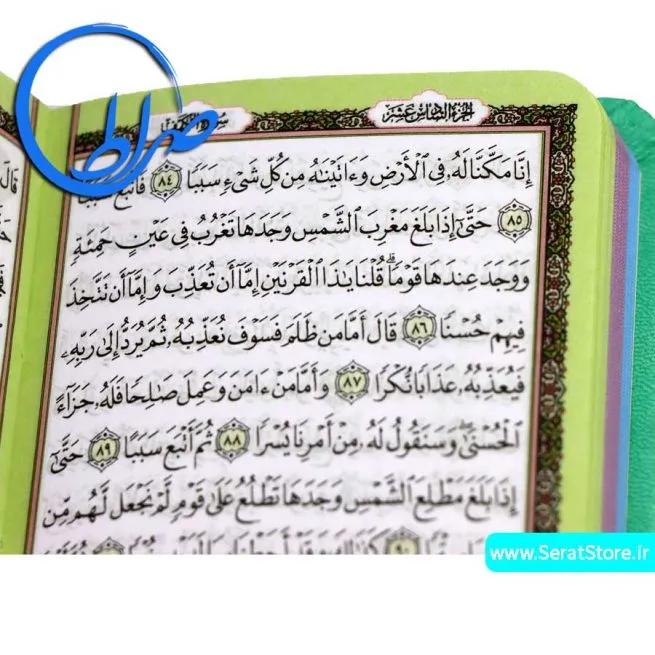 صراط
الجزء السادس عشر
سورة الكهف
إِنَّا مَكَّنَّا لَهُۥ فِى ٱلْأَرْضِ وَءَاتَيْنَٰهُ مِن كُلِّ شَىْءٍ سَبَبًا ﴿٨٤﴾ فَأَتْبَعَ سَبَبًا
﴿٨٥﴾ حَتَّىٰٓ إِذَا بَلَغَ مَغْرِبَ ٱلشَّمْسِ وَجَدَهَا تَغْرُبُ فِى عَيْنٍ حَمِئَةٍ
وَوَجَدَ عِندَهَا قَوْمًا ۗ قُلْنَا يَٰذَا ٱلْقَرْنَيْنِ إِمَّآ أَن تُعَذِّبَ وَإِمَّآ أَن تَتَّخِذَ
فِيهِمْ حُسْنًا ﴿٨٦﴾ قَالَ أَمَّا مَن ظَلَمَ فَسَوْفَ نُعَذِّبُهُۥ ثُمَّ يُرَدُّ إِلَىٰ رَبِّهِۦ
فَيُعَذِّبُهُۥ عَذَابًا نُّكْرًا ﴿٨٧﴾ وَأَمَّا مَنْ ءَامَنَ وَعَمِلَ صَٰلِحًا فَلَهُۥ جَزَآءً
ٱلْحُسْنَىٰ ۖ وَسَنَقُولُ لَهُۥ مِنْ أَمْرِنَا يُسْرًا ﴿٨٨﴾ ثُمَّ أَتْبَعَ سَبَبًا ﴿٨٩﴾ حَتَّىٰٓ
إِذَا بَلَغَ مَطْلِعَ ٱلشَّمْسِ وَجَدَهَا تَطْلُعُ عَلَىٰ قَوْمٍ لَّمْ نَجْعَل لَّهُم مِّن
﴿٩٠﴾
www.SeratStore.ir